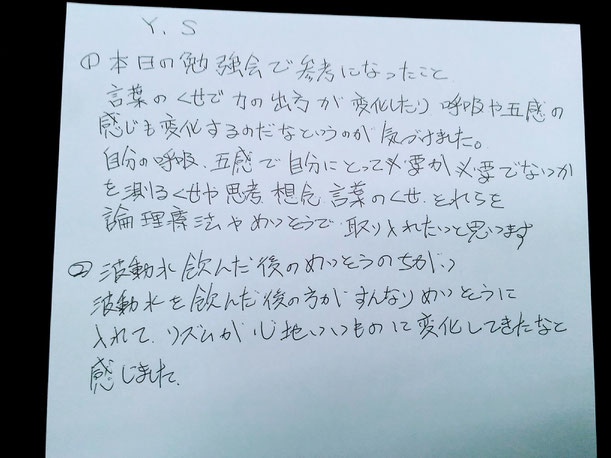 Y.S
① 本日の勉強会で参考になったこと
言葉のくせで力の出方が変化したり呼吸や五感の
感じも変化するのだなというのが気づけました。
自分の呼吸、五感で自分にとって必要か必要でないか
を測るくせや思考 想念 言葉のくせ、それらを
論理療法やめいそうで取り入れたいと思います
② 波動水飲んだ後のめいそうのちがい
波動水を飲んだ後の方がすんなりめいそうに
入れて、リズムが心地いいものに変化してきたなと
感じました。